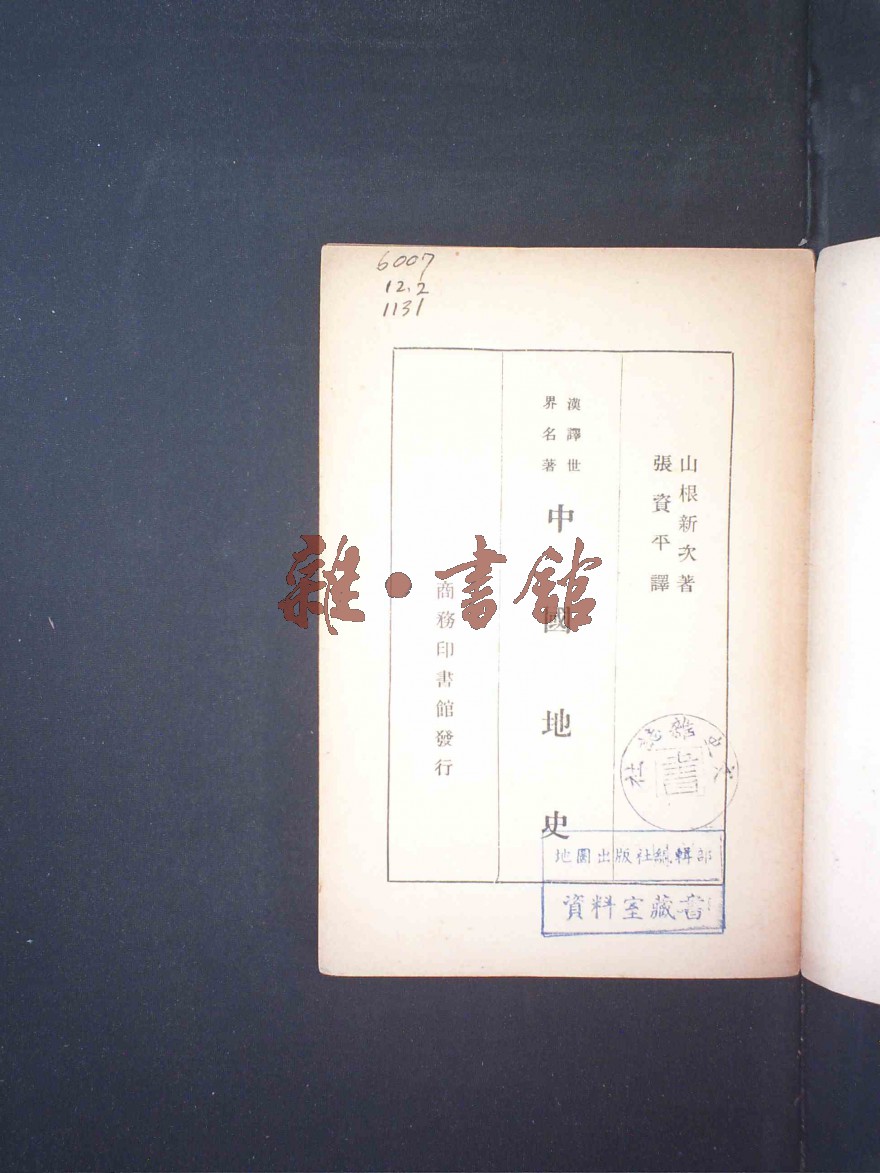 6007
12.2
1131
山根新次著
張資平譯
漢譯世
界名著
中國地史
商務印書館發行
雜·書館
文史雜誌社
書
地圖出版社編輯部
資料室藏書